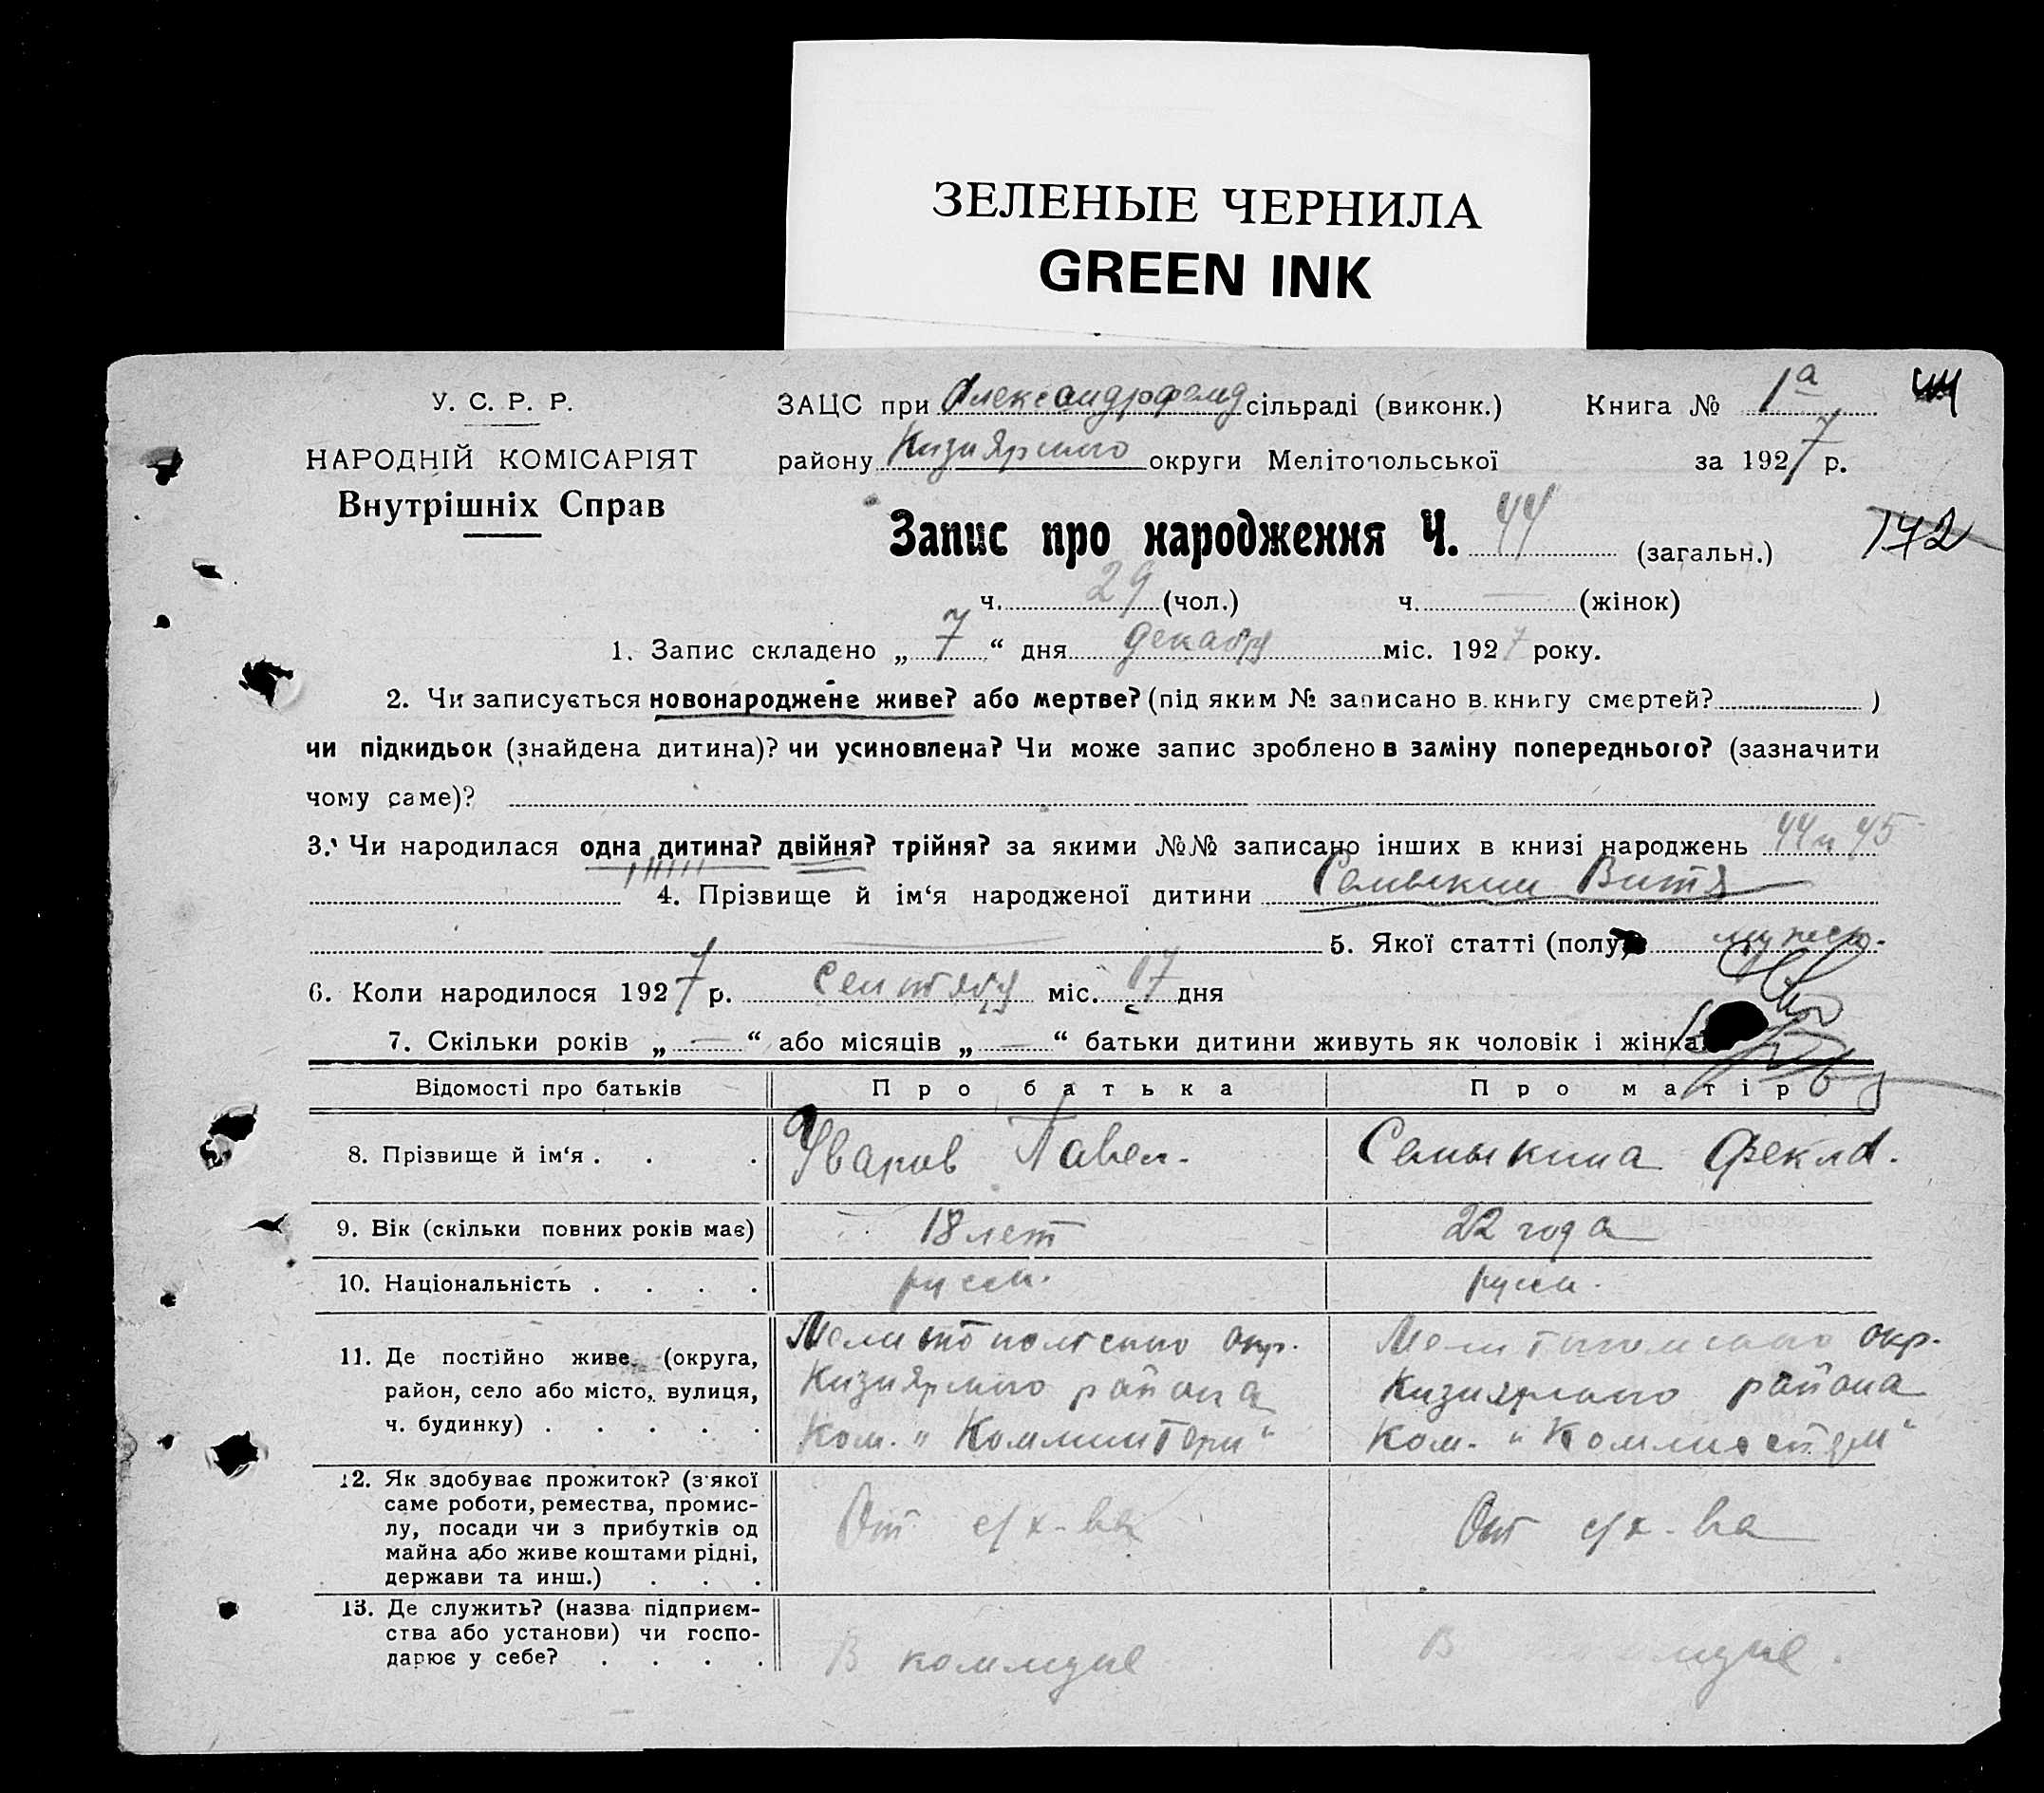 ЗЕЛЕНЫЕ ЧЕРНИЛА
GREEN INK
У. С. Р. Р.
НАРОДНІЙ КОМІСАРІЯТ
Внутрішніх Справ
ЗАЦС при Александрфельд сільраді (виконк.) Книга № 1а
району Кизиярского округи Мелітопольської за 1927 р.
Запис про народження Ч. 44 (загальн.) 172
ч. 29 (чол.) ч. — (жінок)
1. Запис складено „ 7 “ дня декабря міс. 1927 року.
2. Чи записується новонароджене живе? або мертве? (під яким № записано в книгу смертей? )
чи підкидьок (знайдена дитина)? чи усиновлена? Чи може запис зроблено в заміну попереднього? (зазначити
чому саме)?
3. Чи народилася одна дитина? двійня? трійня? за якими №№ записано інших в книзі народжень 44 и 45
4. Прізвище й ім‘я народженої дитини Семыкин Витя
5. Якої статті (полу) мужско.
6. Коли народилося 1927 р. сентября міс. 17 дня
7. Скільки років „ — “ або місяців „ — “ батьки дитини живуть як чоловік і жінка
Відомості про батьків Про батька Про матір
8. Прізвище й ім‘я . . . Уваров Павел. Семыкина Фекла.
9. Вік (скільки повних років має) 18 лет 22 года
10. Національність . . . . русск. русск.
11. Де постійно живе (округа,
район, село або місто, вулиця,
ч. будинку) . . . . .
Мелитопольского окр.
Кизиярского района
Ком. „Коминтерн“
Мелитопольского окр.
Кизиярского района
Ком. „
12. Як здобуває прожиток? (з якої
саме роботи, ремества, промис-
лу, посади чи з прибутків од
майна або живе коштами рідні,
держави та инш.) . . .
От с/х-ва
От с/х-ва
13. Де служить? (назва підприєм-
ства або установи) чи госпо-
дарює у себе? . . . .
В коммуне
В коммуне.